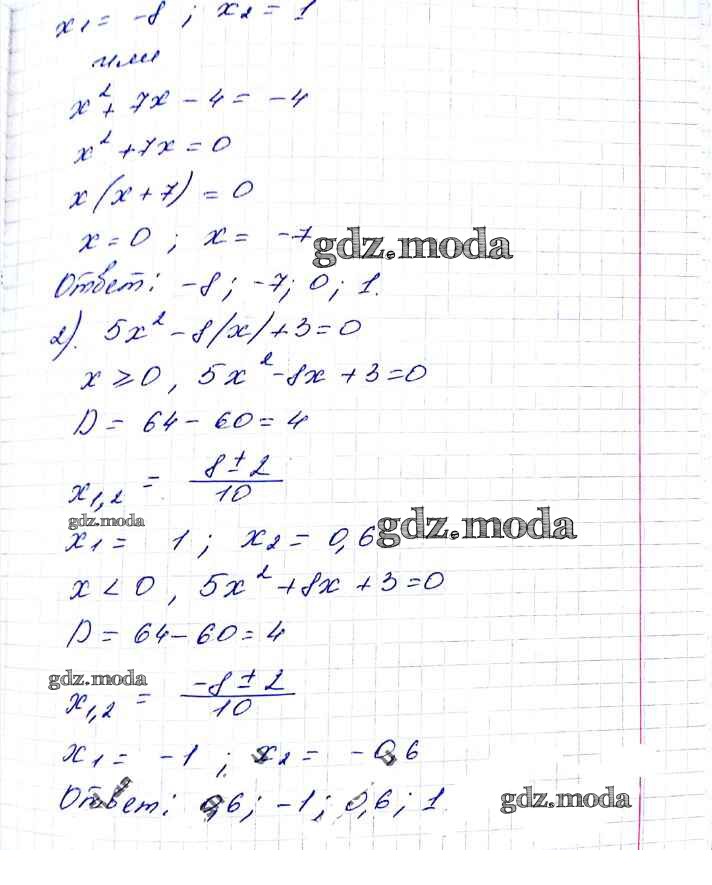 x₁ = -8 ; x₂ = 1
или
x² + 7x - 4 = -4
x² + 7x = 0
x(x + 7) = 0
x = 0 ; x = -7
gdz.moda
Ответ: -8 ; -7 ; 0 ; 1.
2). 5x² - 8|x| + 3 = 0
x ≥ 0 , 5x² - 8x + 3 = 0
D = 64 - 60 = 4
x₁,₂ = (8 ± 2)/10
gdz.moda
gdz.moda
x₁ = 1 ; x₂ = 0,6
x < 0 , 5x² + 8x + 3 = 0
D = 64 - 60 = 4
gdz.moda
x₁,₂ = (-8 ± 2)/10
x₁ = -1 ; x₂ = -0,6
Ответ: 0,6 ; -1 ; 0,6 ; 1.
gdz.moda